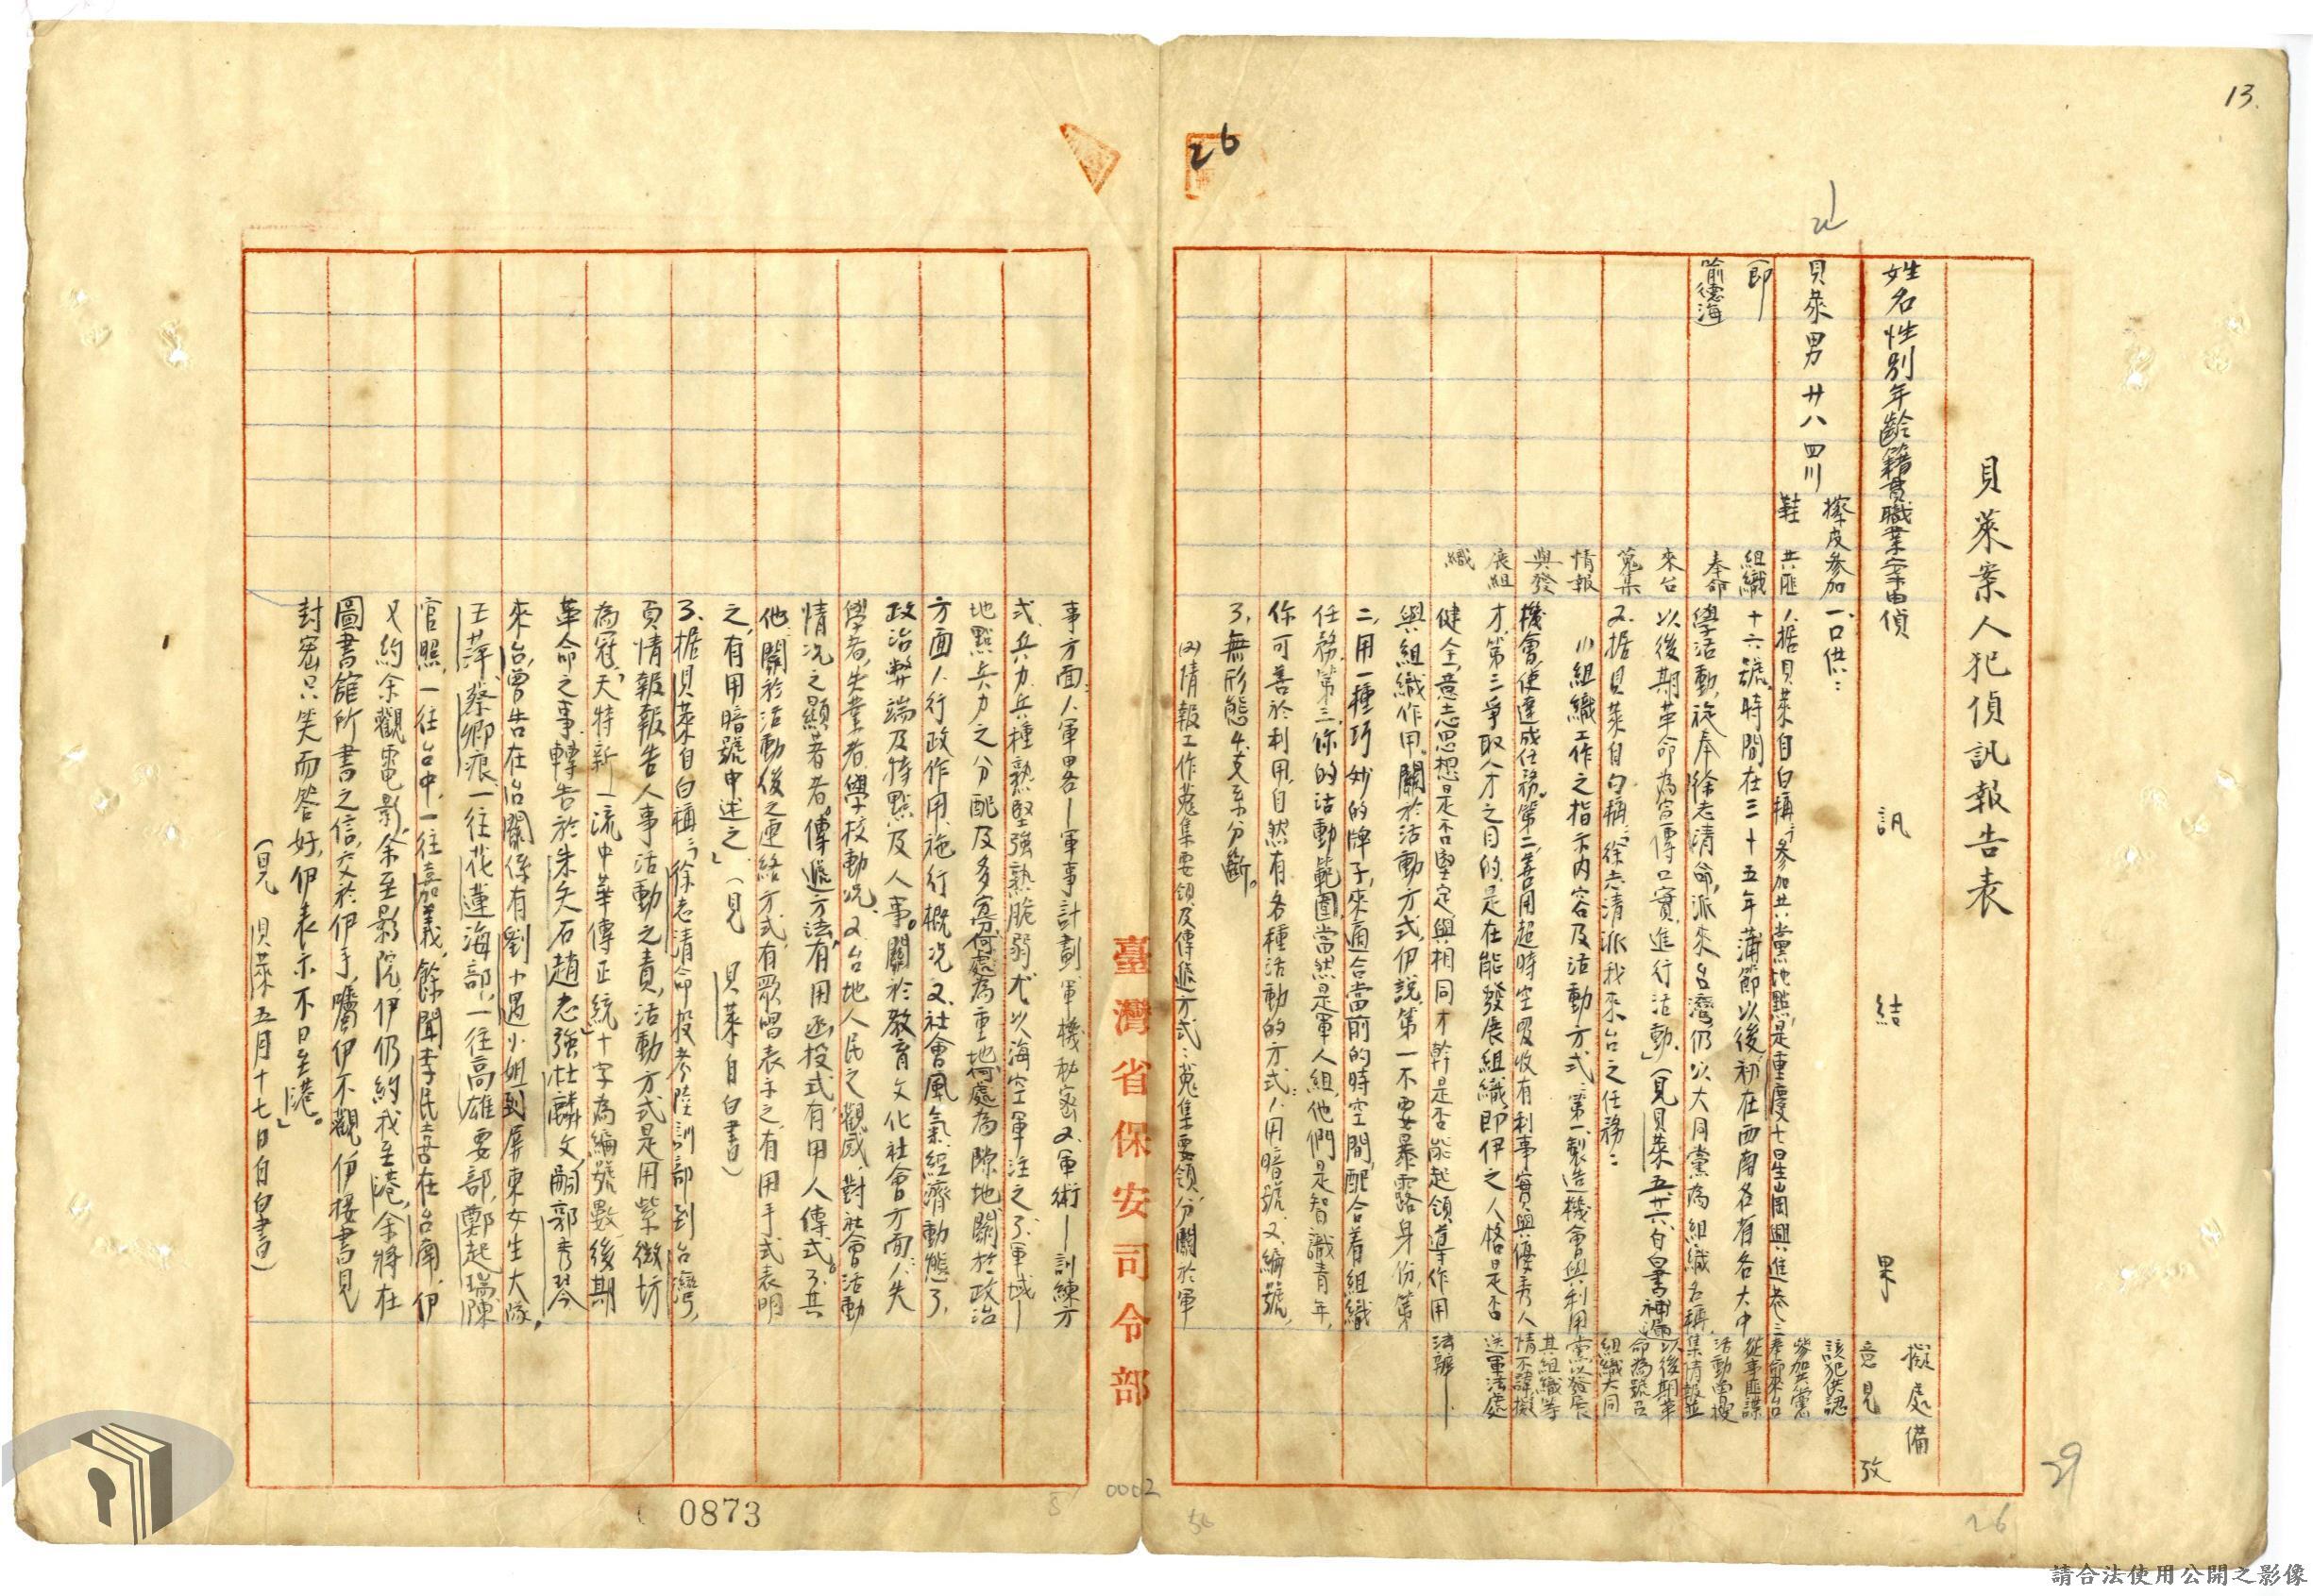 13.
26
貝萊案人犯偵訊報告表
姓名性別年齡籍貫職業案由偵訊結果擬處意見備攷
貝萊男廿八四川擦皮鞋
(即喻德海)
參加共匪組織奉命來台蒐集情報與發展組織
一、口供:
1.据貝萊自白稱:「參加共黨地點,是重慶七星崗興進巷三
十六號,時間在三十五年蒲節以後,初在西南各有各大中
學活動,旋奉徐志清命,派來台灣,仍以大同黨為組織名稱,
以後期革命為宣傳口實,進行活動。」(見貝萊五廿六自白書補漏)
2.据貝萊自白稱:「徐志清派我來台之任務:
(1)組織工作之指示內容及活動方式:第一,製造機會與利用
機會,使達成任務。第二,善用超時空吸收有利事實與優秀人
才,第三爭取人才之目的,是在能發展組織,即伊之人格是否
健全,意志思想是否堅定與相同,才幹是否能起領導作用
與組織作用。關於活動方式,伊說,第一不要暴露身份,第
二,用一種巧妙的牌子,來適合當前的時空間,配合着組織
任務。第三,你的活動範圍,當然是軍人組,他們是智識青年,
你可善於利用,自然有各種活動的方式:1.用暗號,2.編號,
3.無形態4.支系分斷。
(2)情報工作蒐集要領及傳遞方式:蒐集要領,分關於軍
該犯供認參加共黨奉命來台從事匪諜活動曾搜集情報並以後期革命為號召組織大同黨以發展其組織等情不諱擬送軍法處法辦
事方面:1.軍畧—軍事計劃,軍機秘密2.軍術—訓練方
式,兵力,兵種,孰堅強孰脆弱,尤以海空軍注之3.軍域—
地點兵力之分配及多寡,何處為重地,何處為隙地,關於政治
方面1.行政作用,施行概況2.社會風氣,經濟動態3.
政治弊端及特點,及人事。關於教育文化社會方面:1.失
學者,失業者,學校動況,2.台地人民之觀感,對社會活動
情況之顯著者。傳遞方法,有用函投式,有用人傳式。3.其
他,關於活動後之連絡方式,有歌唱表示之,有用手式表明
之,有用暗號申述之。」(見貝萊自白書)
3.据貝萊自白稱:「徐志清命投考陸訓部到台灣,
負情報報告人事活動之責,活動方式是用紫微坊
為冠,『天特新一流中華傳正統』十字為編號數,後期
革命之事,轉告於朱矢石趙志強杜麟文,嗣郭秀琴
來台,曾告在台關係有劉小遇小姐到屏東女生大隊,
王萍,蔡鄉痕,一往花蓮海部,一往高雄要部,鄭起瑞陳
官照,一往台中,一往嘉義,餘聞李民壵在台南,伊
又約余觀電影,余至影院,伊仍約我至港,余將在
圖書舘所書之信,交於伊手,囑伊不觀,伊接書見
封密只笑而答好,伊表示不日至港。」
(見貝萊五月十七日自白書)
臺灣省保安司令部
0873
0002
29
26
請合法使用公開之影像